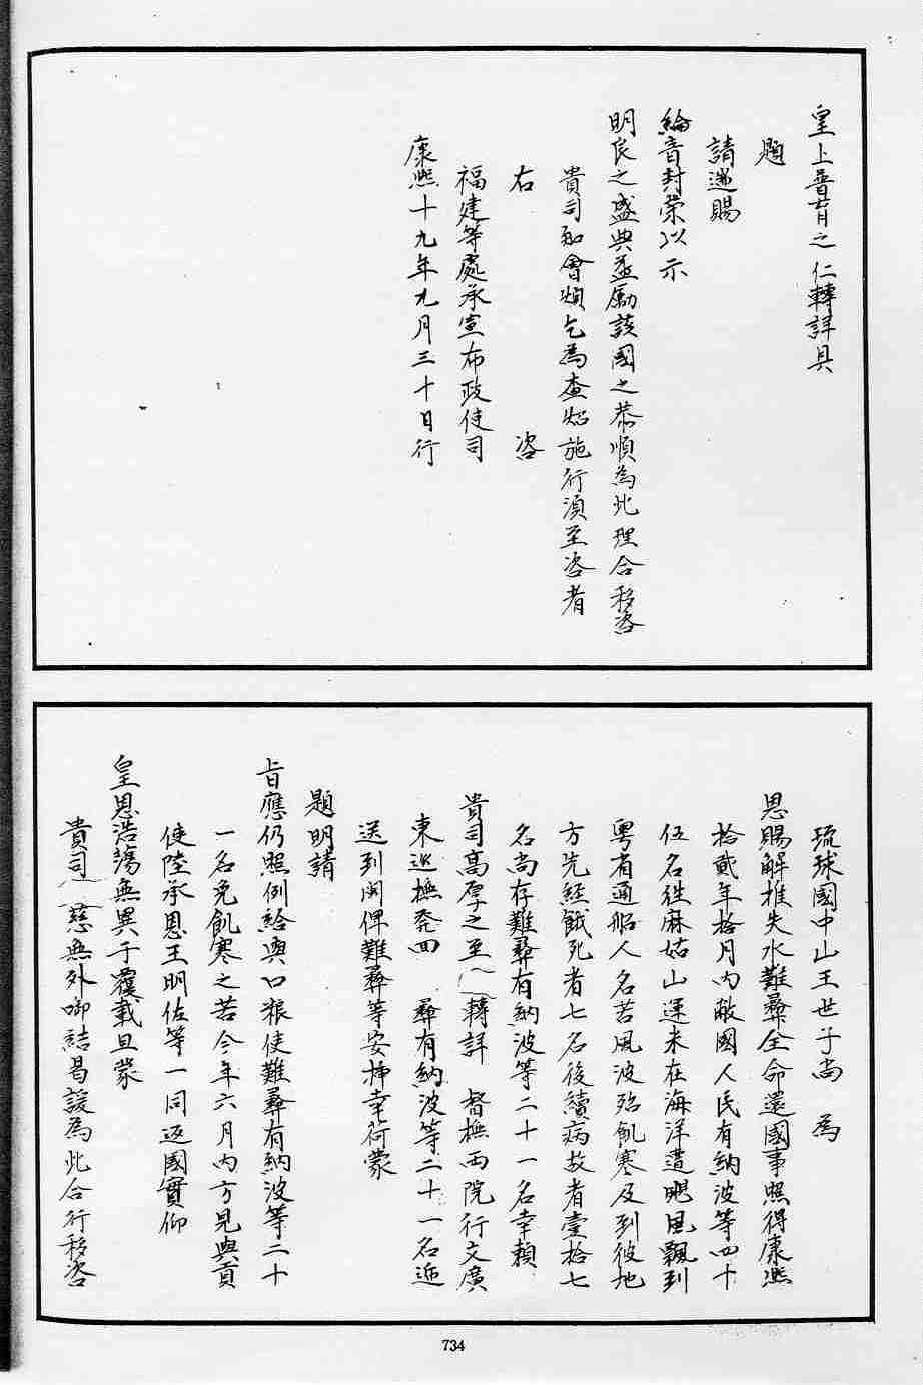 皇上普育之仁轉詳具
題
請迅賜
綸音封榮以示
明良之盛典並勵該國之恭順為此理合移咨
貴司知會煩乞為查照施行須至咨者
右　　　咨
福建等處承宣布政使司
康熙十九年九月三十日行
琉球國中山王世子尚　為
恩賜解推失水難彝全命還國事照得康熙
拾貳年拾月內敝國人民有納波等四十
伍名往麻姑山運米在海洋遭颶風飄到
粵省通船人名苦風波殆飢寒及到彼地
方先經餓死者七名後續病故者壹拾七
名尚存難彝有納波等二十一名幸賴
貴司高厚之至轉詳　督撫兩院行文廣
東巡撫　　彝有納波等二十一名逓
送到閩俾難彝等安揷幸荷蒙
題明請
旨應仍照例給與口粮使難彝有納波等二十
一名免飢寒之苦今年六月內方見與貢
使陸承恩王明佐等一同返國實仰
皇恩浩蕩無異于覆載且蒙
貴司慈無外啣結曷諼為此合行移咨
734